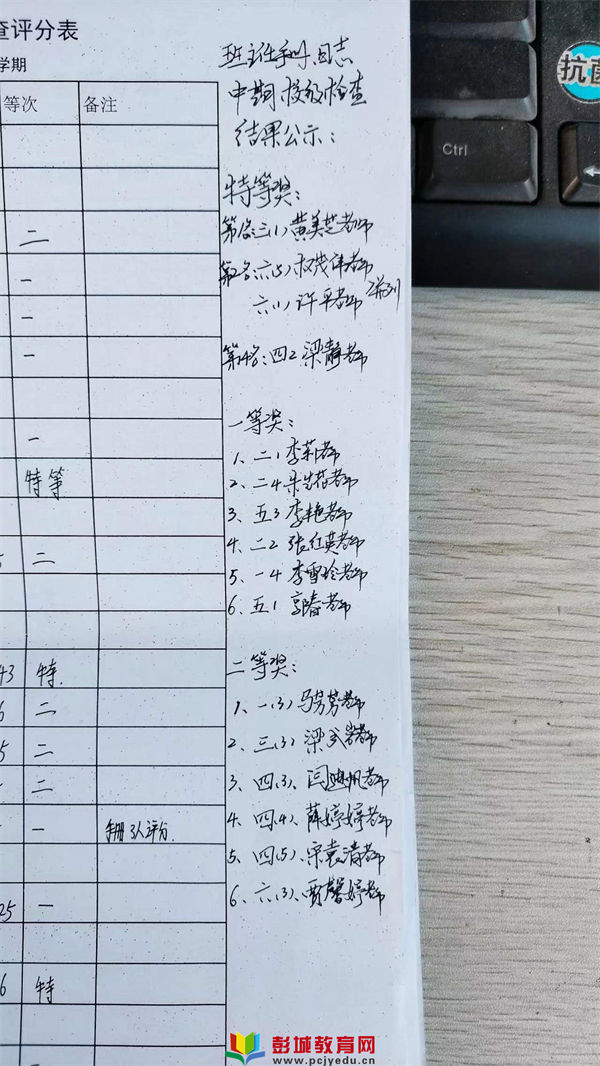 查评分表
学期
等次 备注
二
一
一
一
一
特等
二
特.
二
二
二
一
25 一
6 特
班主任手册
中期校级检查
结果公示：
特等奖：
第1名三(1)黄美芝老师
第2名六(2)权茂伟老师
六(1)许平老师 并列
第4名：四2梁静老师
一等奖：
1、二1李莉老师
2、二4 老师
3、五3李艳老师
4、二2张红英老师
5、一4李雪玲老师
6、五1 老师
二等奖：
1、一(3)马芳芳老师
2、三(3)梁 老师
3、四(3)、闫 帆老师
4、四(4)、薛婷婷老师
5、四(5)、宋袁清老师
6、六(3)、贾馨婷老师
Ctrl
抗菌
彭城教育网
www.pcjyedu.cn